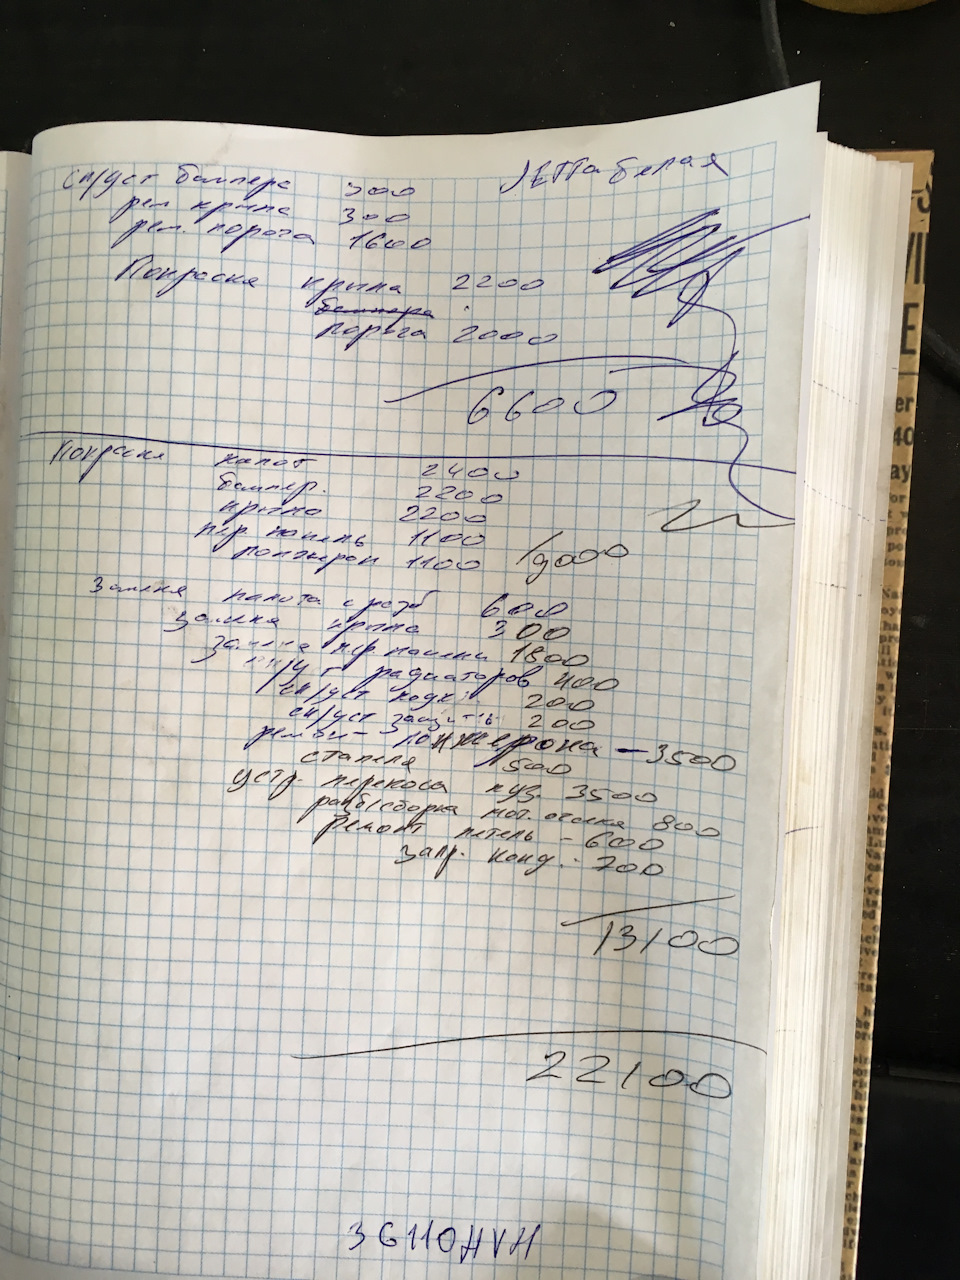 сп/уст бампера 300 JETTA белая
рем крыла 300
рем. порога 1600
Покраска крыла 2200
бампера
порога 2000
6600
Покраска капот 2400
бампер. 2200
крыло 2200
пер панель 1100
лонжерон 1100 /9000
Замена капота с разб 600
замена крыла 300
замена пер панели 1800
сп/уст радиаторов 400
сп/уст 200
сп/уст защиты 200
ремонт лонжерона - 3500
стапеля 500
устр. перекоса куз 3500
разб/сборка мот. отсека 800
ремонт петель - 600
запр. конд. - 700
13100
22100
36110HVH